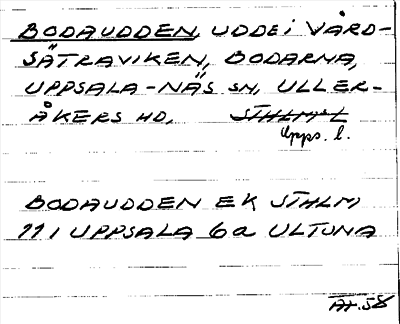 BODAUDDEN, UDDE i VÅRD-
SÄTRAVIKEN, BODARNA,
UPPSALA-NÄS SN, ULLER-
ÅKERS HD, STHLMS L
Upps. l.
BODAUDDEN EK STHLM
111 UPPSALA 6a ULTUNA